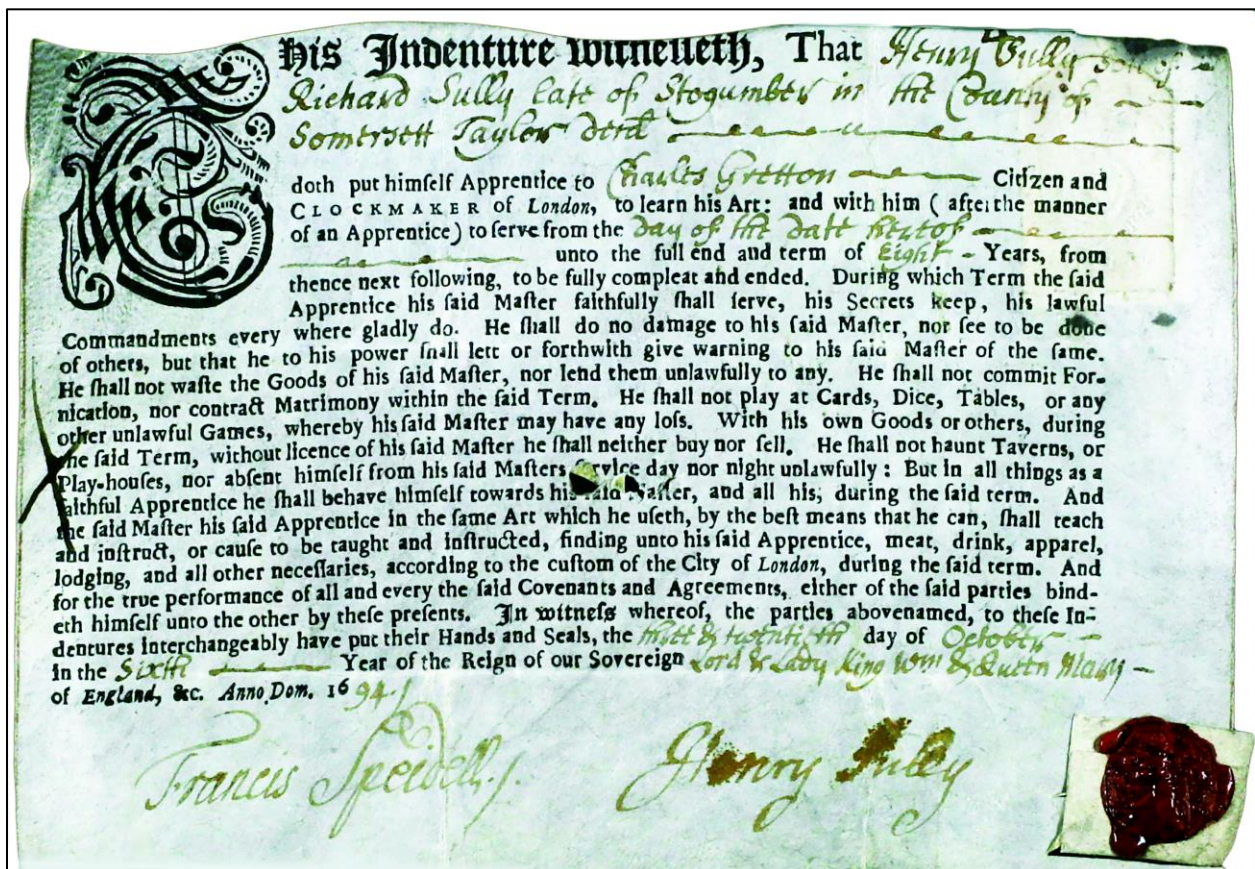 This Indenture witnesseth, That Henry Sully Son of
Richard Sully late of Stogumber in the County of
Somersett Taylor decd
doth put himself Apprentice to Charles Gretton Citizen and
CLOCKMAKER of London, to learn his Art: and with him (after the manner
of an Apprentice) to ſerve from the day of the date hereof
unto the full end and term of Eight Years, from
thence next following, to be fully compleat and ended. During which Term the ſaid
Apprentice his ſaid Maſter faithfully ſhall ſerve, his Secrets keep, his lawful
Commandments every where gladly do. He ſhall do no damage to his ſaid Maſter, nor ſee to be done
of others, but that he to his power ſhall lett or forthwith give warning to his ſaid Maſter of the ſame.
He ſhall not waſte the Goods of his ſaid Maſter, nor lend them unlawfully to any. He ſhall not commit For-
nication, nor contract Matrimony within the ſaid Term. He ſhall not play at Cards, Dice, Tables, or any
other unlawful Games, whereby his ſaid Maſter may have any loſs. With his own Goods or others, during
the ſaid Term, without licence of his ſaid Maſter he ſhall neither buy nor ſell. He ſhall not haunt Taverns, or
Play-houſes, nor abſent himſelf from his ſaid Maſters ſervice day nor night unlawfully: But in all things as a
faithful Apprentice he ſhall behave himſelf towards his ſaid Maſter, and all his, during the ſaid term. And
the ſaid Maſter his ſaid Apprentice in the ſame Art which he uſeth, by the beſt means that he can, ſhall teach
and inſtruct, or cauſe to be taught and inſtructed, finding unto his ſaid Apprentice, meat, drink, apparel,
lodging, and all other neceſſaries, according to the cuſtom of the City of London, during the ſaid term. And
for the true performance of all and every the ſaid Covenants and Agreements, either of the ſaid parties bind-
eth himſelf unto the other by theſe preſents. In witneſs whereof, the parties abovenamed, to theſe In-
dentures interchangeably have put their Hands and Seals, the twentieth day of October
in the Sixth Year of the Reign of our Sovereign Lord & Lady King Wm & Queen Mary
of England, &c. Anno Dom. 1694
Francis Speidell. Henry Sully